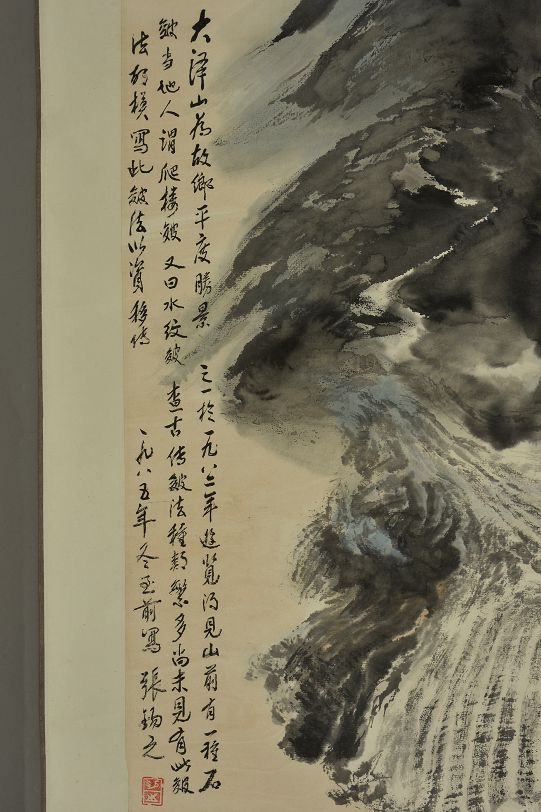 大泽山为故鄉平度勝景之一於一九八二年遊覽得見山前有一種石
皴当地人謂爬楼皴又曰水纹皴查古传皴法種類繁多尚未見有此皴
法 寫此皴法以資 传
一九八五年冬至前寫 張錫之